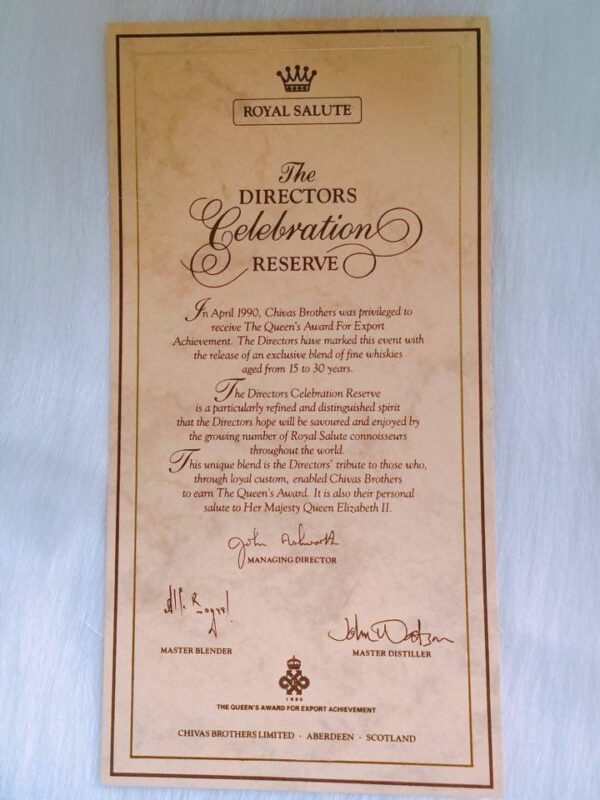 ROYAL SALUTE
The
DIRECTORS
Celebration
RESERVE
In April 1990, Chivas Brothers was privileged to
receive The Queen's Award For Export
Achievement. The Directors have marked this event with
the release of an exclusive blend of fine whiskies
aged from 15 to 30 years.
The Directors Celebration Reserve
is a particularly refined and distinguished spirit
that the Directors hope will be savoured and enjoyed by
the growing number of Royal Salute connoisseurs
throughout the world.
This unique blend is the Directors' tribute to those who,
through loyal custom, enabled Chivas Brothers
to earn The Queen's Award. It is also their personal
salute to Her Majesty Queen Elizabeth II.
John Ashworth
MANAGING DIRECTOR
MASTER BLENDER
John W Watson
MASTER DISTILLER
1990
THE QUEEN'S AWARD FOR EXPORT ACHIEVEMENT
CHIVAS BROTHERS LIMITED · ABERDEEN · SCOTLAND